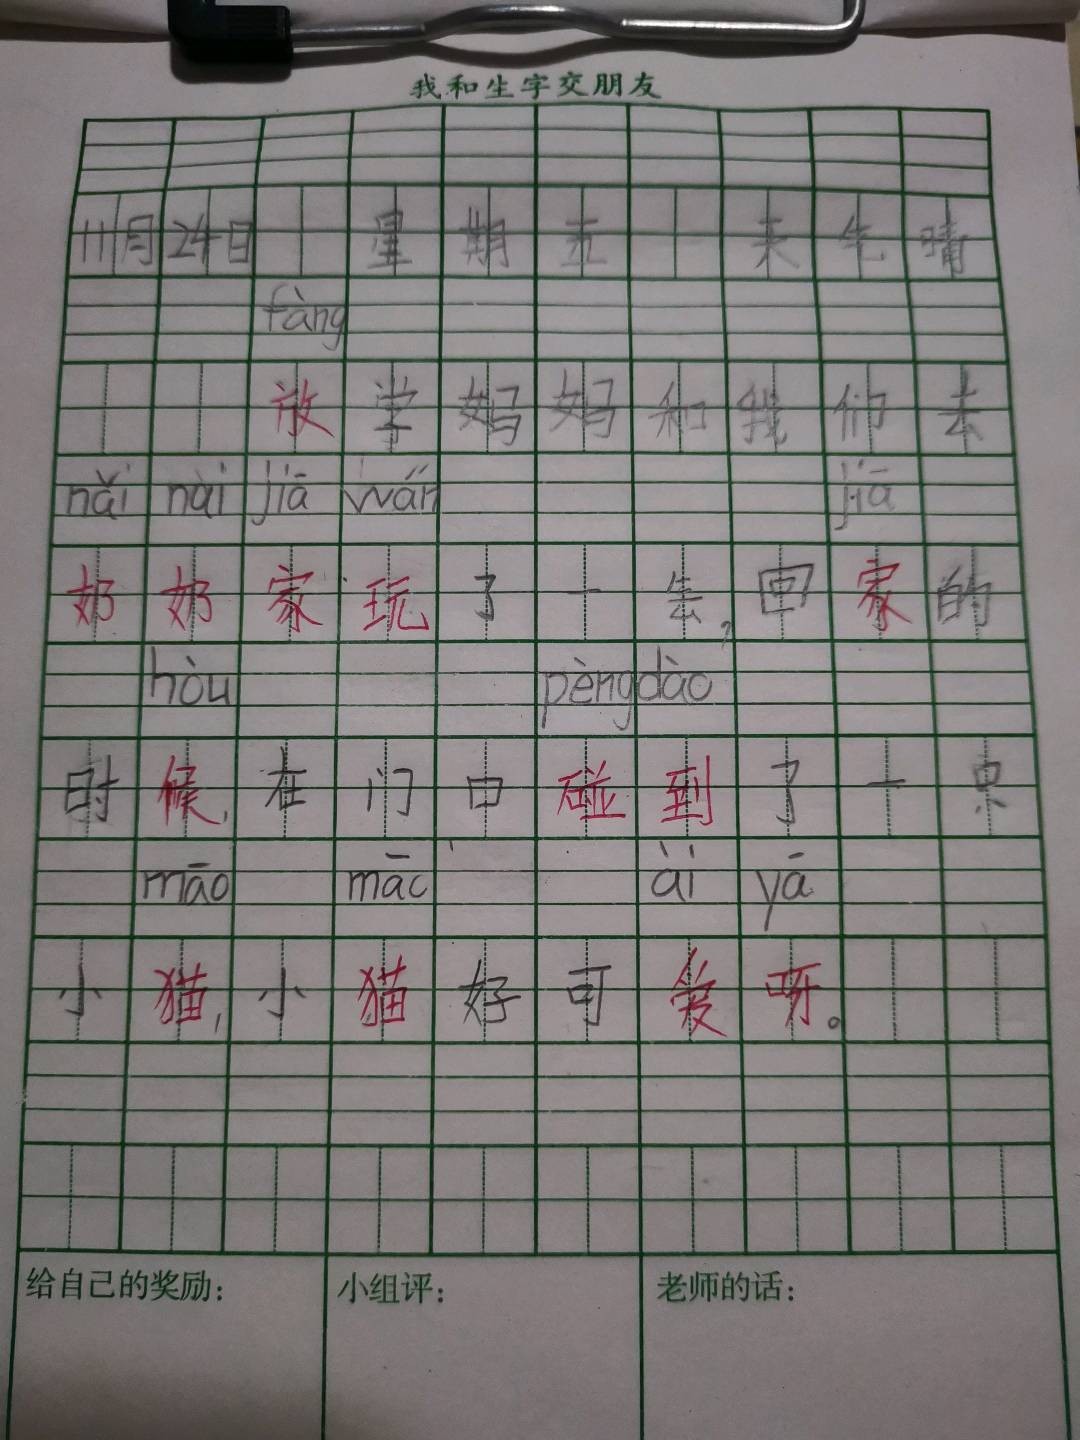 我和生字交朋友
11月24日 星期五 天气晴
fàng
放学妈妈和我们去
nǎi nài jiā wán jiā
奶奶家玩了一会,回家的
hòu pèng dào
时候,在门口碰到了一只
māo māo ài yā
小猫,小猫好可爱呀。
给自己的奖励: 小组评: 老师的话: